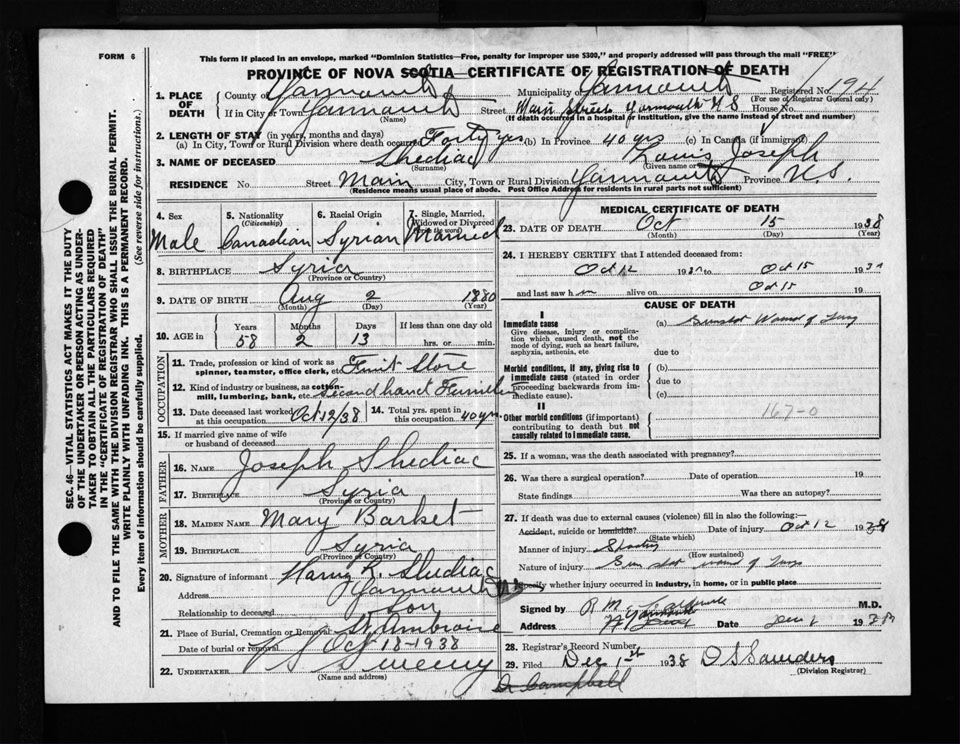 FORM 6
This form if placed in an envelope, marked "Dominion Statistics—Free, penalty for improper use $300," and properly addressed will pass through the mail "FREE"
PROVINCE OF NOVA SCOTIA—CERTIFICATE OF REGISTRATION OF DEATH
1. PLACE OF DEATH
County of Yarmouth Municipality Yarmouth Registered No. 1911
(For use of Registrar General only)
If in City or Town Yarmouth Street Main Street Yarmouth N S House No.
(Name) (If death occurred in a hospital or institution, give the name instead of street and number)
2. LENGTH OF STAY (in years, months and days)
(a) In City, Town or Rural Division where death occurred Forty yrs (b) In Province 40 yrs (c) In Canada (if immigrant)
3. NAME OF DECEASED Shediac Louis Joseph
(Surname) (Given name or names)
RESIDENCE No. Street Main City, Town or Rural Division Yarmouth Province N.S.
(Residence means usual place of abode. Post Office Address for residents in rural parts not sufficient)
4. Sex Male
5. Nationality (Citizenship) Canadian
6. Racial Origin Syrian
7. Single, Married, Widowed or Divorced (write the word) Married
8. BIRTHPLACE Syria
(Province or Country)
9. DATE OF BIRTH Aug 2 1880
(Month) (Day) (Year)
10. AGE in Years Months Days If less than one day old
58 2 13 hrs. or min.
OCCUPATION
11. Trade, profession or kind of work as spinner, teamster, office clerk, etc. Fruit Store
12. Kind of industry or business, as cotton-mill, lumbering, bank, etc. Second hand Furniture
13. Date deceased last worked at this occupation Oct 12/38
14. Total yrs. spent in this occupation 40 yrs.
15. If married give name of wife or husband of deceased
FATHER
16. NAME Joseph Shediac
17. BIRTHPLACE Syria
(Province or Country)
MOTHER
18. MAIDEN NAME Mary Barket
19. BIRTHPLACE Syria
(Province or Country)
20. Signature of informant Harry L. Shediac
Address Yarmouth N.S.
Relationship to deceased Son
21. Place of Burial, Cremation or Removal St Ambroise
Date of burial or removal Oct 18-1938
22. UNDERTAKER V S Sweeny
(Name and address)
MEDICAL CERTIFICATE OF DEATH
23. DATE OF DEATH Oct 15 1938
(Month) (Day) (Year)
24. I HEREBY CERTIFY that I attended deceased from:
Oct 12 19 to Oct 15 19
and last saw h im alive on Oct 15 19
CAUSE OF DEATH
I
Immediate cause
Give disease, injury or complication which caused death, not the mode of dying, such as heart failure, asphyxia, asthenia, etc
(a) Gunshot Wound of Lung
due to
Morbid conditions, if any, giving rise to immediate cause (stated in order proceeding backwards from immediate cause).
(b)
due to
(c)
II
Other morbid conditions (if important) contributing to death but not causally related to immediate cause.
167-0
25. If a woman, was the death associated with pregnancy?
26. Was there a surgical operation? Date of operation 19
State findings Was there an autopsy?
27. If death was due to external causes (violence) fill in also the following:—
Accident, suicide or homicide? Date of injury Oct 12 1938
(State which)
Manner of injury Shooting
(How sustained)
Nature of injury Gun shot wound of Lungs
Specify whether injury occurred in industry, in home, or in public place
Signed by R M M.D.
Address Date 19
28. Registrar's Record Number
29. Filed Dec 1st 1938 D S Saunders
(Division Registrar)
D. Campbell
SEC. 46—VITAL STATISTICS ACT MAKES IT THE DUTY
OF THE UNDERTAKER OR PERSON ACTING AS UNDERTAKER TO OBTAIN ALL THE PARTICULARS REQUIRED
IN THE "CERTIFICATE OF REGISTRATION OF DEATH"
AND TO FILE THE SAME WITH THE DIVISION REGISTRAR WHO SHALL ISSUE THE BURIAL PERMIT.
WRITE PLAINLY WITH UNFADING INK. THIS IS A PERMANENT RECORD.
Every item of information should be carefully supplied. (See reverse side for instructions.)